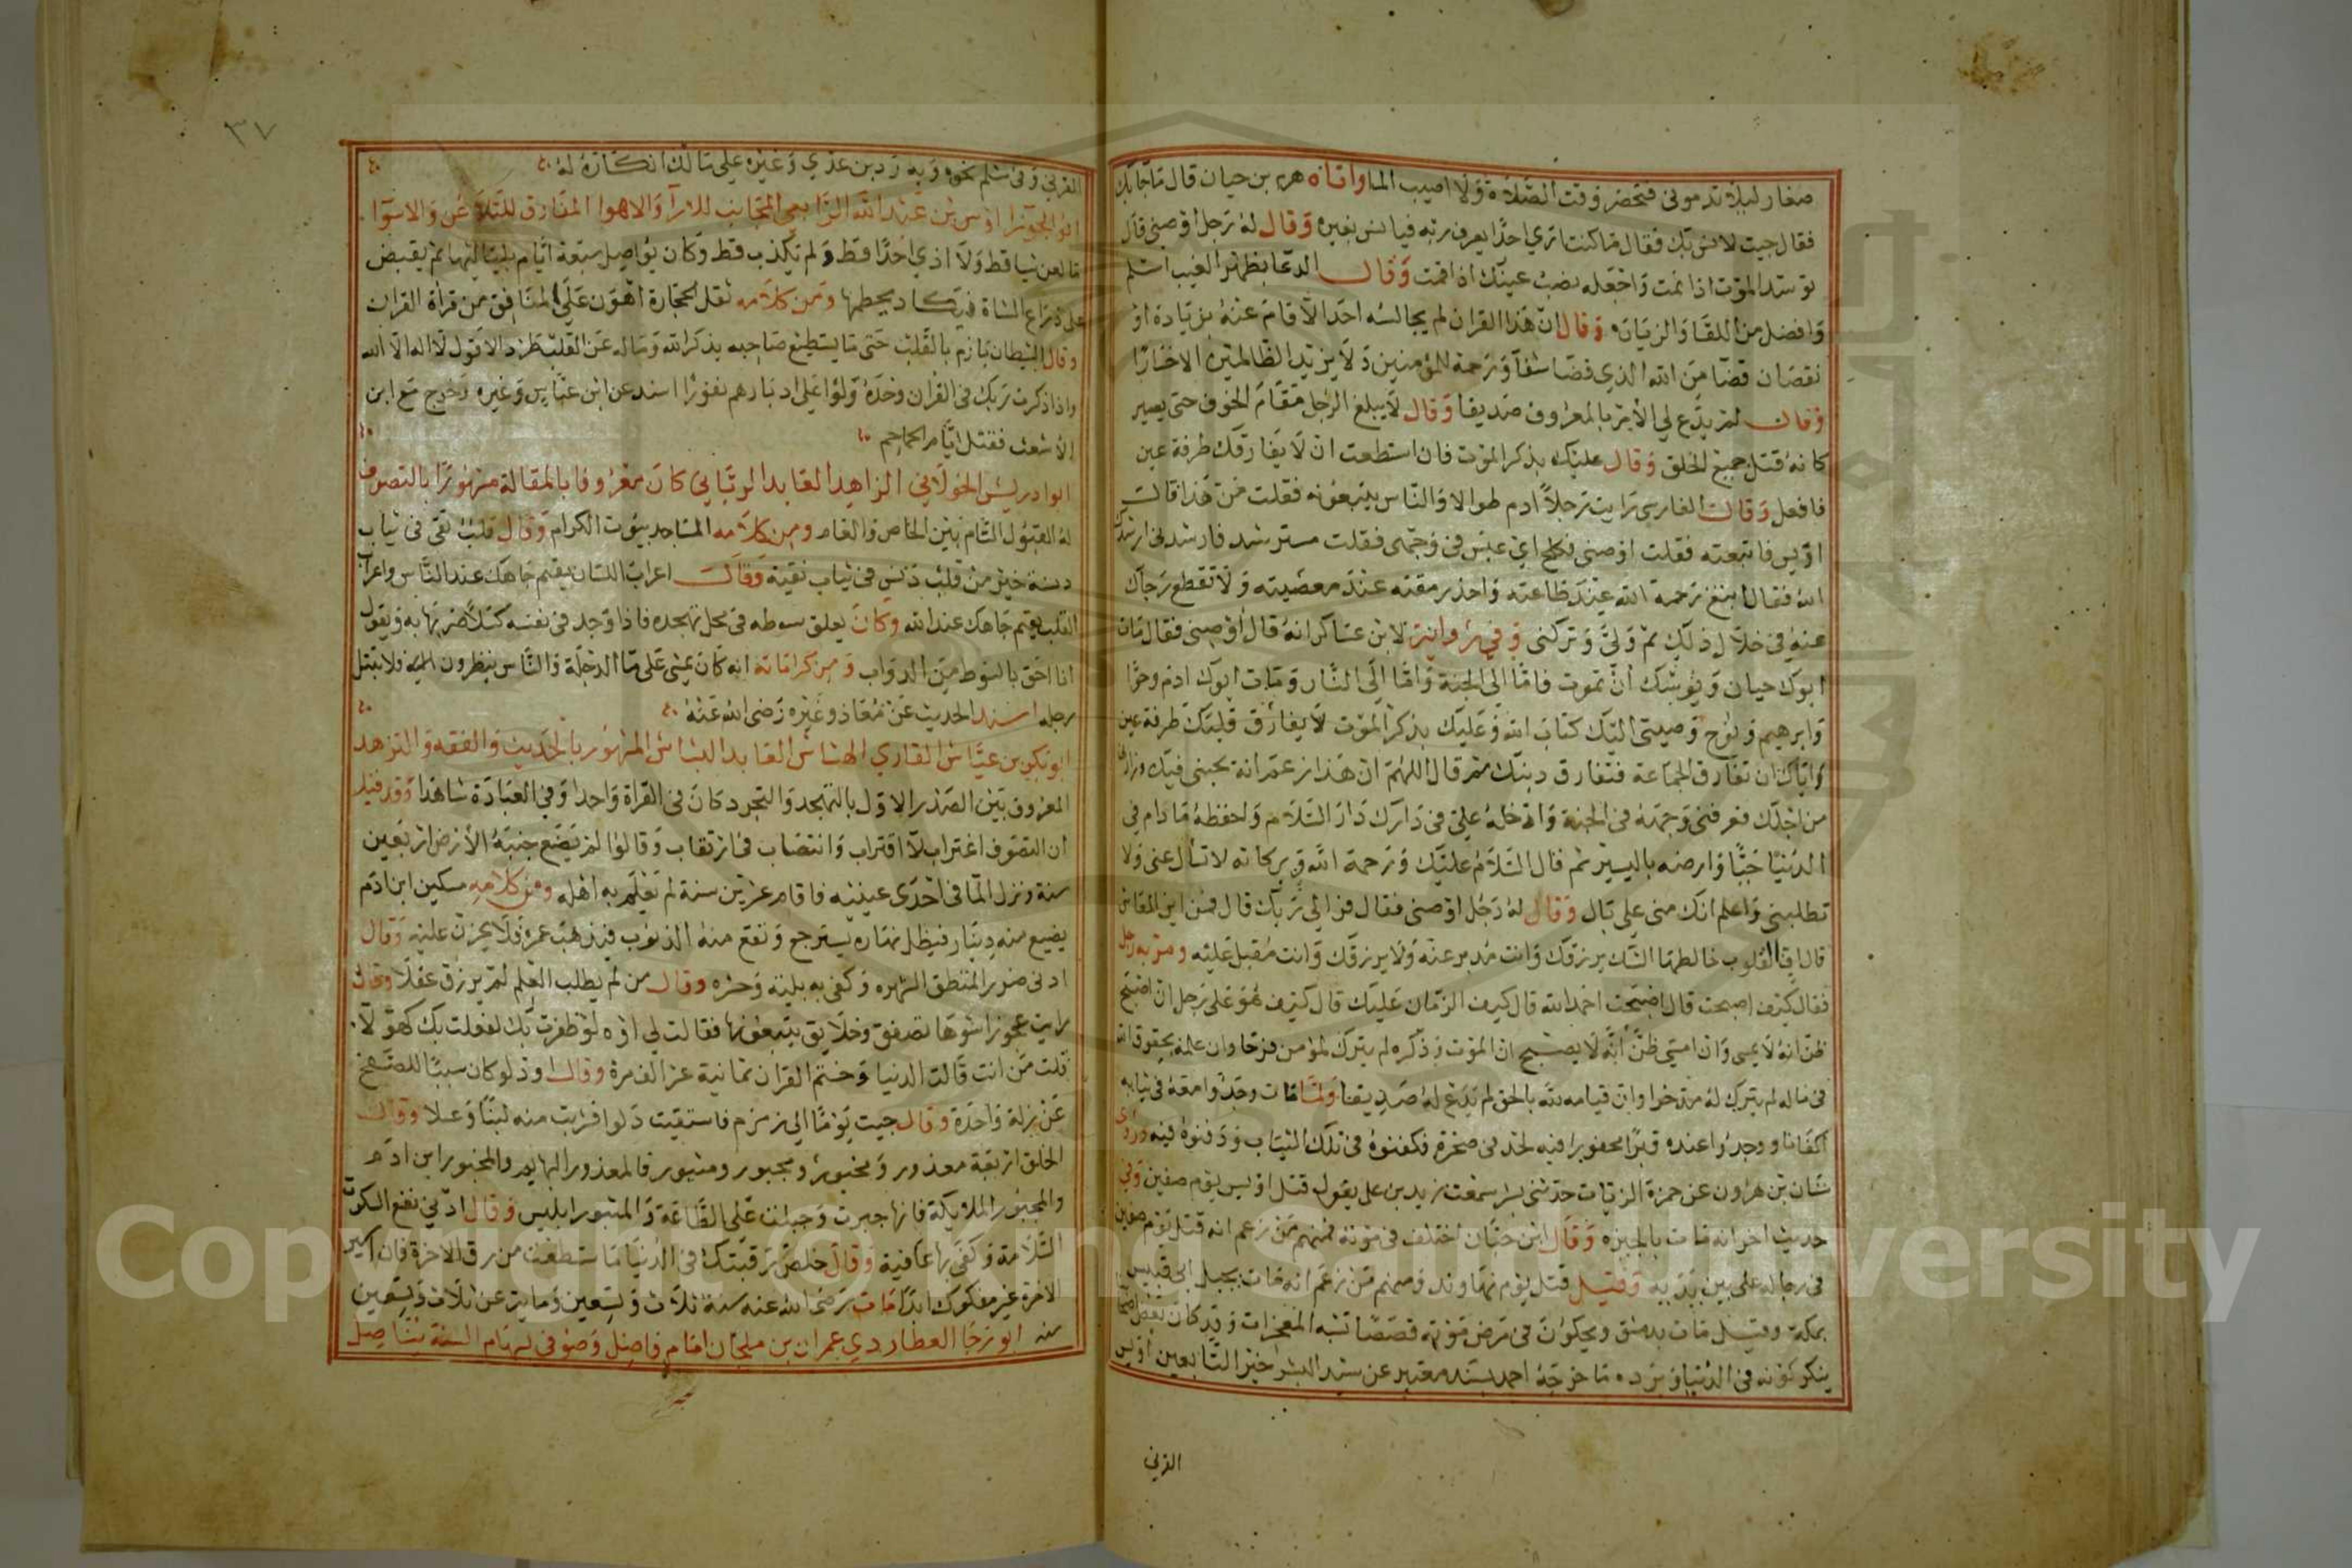 صغار ليلا تدموني فتحضر وقت الصلاة ولا اصيب الما واتاه هرم بن حيان قال ما جابك
فقال جيت لانس بك فقال ما كنت اري احدا يعرف ربه فيانس بغيره وقال له رجل اوصني قال
توسد الموت اذا نمت واجعله نصب عينك اذا قمت وقال الدعا بظهر الغيب اسلم
وافضل من اللقا والزيارة وقال ان هذا القران لم يجالسه احد الا قام عنه بزيادة او
نقصان قضا من الله الذي قضا شفآ ورحمة للمؤمنين ولا يزيد الظالمين الا خسارا
وقال لم يدع لي الامر بالمعروف صديقا وقال لا يبلغ الرجل مقام الخوف حتي يصير
كانه قتل جميع الخلق وقال عليك بذكر الموت فان استطعت ان لا يفارقك طرفة عين
فافعل وقال الفارسي رايت رجلا ادم طوالا والناس يتبعونه فقلت من هذا قالت
اويس فاتبعته فقلت اوصني فكلح اي عبس في وجهي فقلت مسترشد فارشدني ارشدك
الله فقال ابتغ رحمة الله عند طاعته واحذر مقته عند معصيته ولا تقطع رجاك
عنه في خلال ذلك ثم ولي وتركني وفي رواية لابن عساكر انه قال اوصني فقال مات
ابوك حيان ويوشك ان تموت فاما الي الجنة واما الي النار ومات ابوك ادم وحوا
وابرهيم ونوح وصيتي اليك كتاب الله وعليك بذكر الموت لا يفارق قلبك طرفة عين
واياك ان تفارق الجماعة فتفارق دينك ثم قال اللهم ان هذا زعم انه يحبني فيك وزارني
من اجلك فعرفني وجهه في الجنة وادخله علي في دارك دار السلام واحفظه ما دام في
الدنيا حيا وارضه باليسير ثم قال السلام عليك ورحمة الله وبركاته لا تسال عني ولا
تطلبني واعلم انك مني علي بال وقال له رجل اوصني فقال فر الي ربك قال فمن اين المعاش
قال اف القلوب خالطها الشك يرزقك وانت مدبر عنه ولا يرزقك وانت مقبل عليه ومر به رجل
فقال كيف اصبحت قال اصبحت احمد الله قال كيف الزمان عليك قال كيف هو علي رجل ان اصبح
ظن انه لا يمسي وان امسي ظن انه لا يصبح ان الموت وذكره لم يترك لمؤمن فرحا وان علمه بحقوق الله
في ماله لم يترك له مدخرا وان قيامه لله بالحق لم يدع له صديقا ولما مات وجدوا معه في ثيابه
اكفانا ووجدوا عنده قبرا محفورا فيه لحد في صخرة فكفنوه في تلك الثياب ودفنوه فيه وروي
شان بن هرون عن حمزة الزيات حدثني بشر سمعت زيد بن علي يقول قتل اويس يوم صفين وفي
حديث اخر انه مات بالجيزه وقال ابن حبان اختلف في موته فمنهم من زعم انه قتل يوم صفين
في رجاله علي بين يديه وقيل قتل يوم نهاوند ومنهم من زعم انه مات بجبل ابي قبيس
بمكة وقيل مات بدمشق ويحكون في مرض موته قصصا تشبه المعجزات وقد كان بعض اصحابنا
ينكر كونه في الدنيا ويرده ما خرجه احمد بسند معتبر عن سيد البشر خير التابعين اويس
القرني
٣٧
القرني وفي مسلم نحوه وبه رد بن عدي وغيره علي مالك انكاره له
ابو الجوزا اوس بن عبد الله الربعي المجانب للارآ والاهوا المفارق للتلاعن والاسوآ
ما لعن شيا قط ولا اذي احدا قط ولم يكذب قط وكان يواصل سبعة ايام بلياليها ثم يقبض
علي ذراع الشاة فيكاد يحطمها ومن كلامه نقل الحجارة اهون علي المنافق من قراة القران
وقال الشيطان يازم بالقلب حتي ما يستطيع صاحبه بذكر الله وماله عن القلب طرد الا قول لا اله الا الله
واذا ذكرت ربك في القران وحده ولوا علي ادبارهم نفورا اسند عن ابن عباس وغيره وخرج مع ابن
الاشعث فقتل ايام الجماجم
ابو ادريس الخولاني الزاهد العابد الرباني كان معروفا بالمقالة مشهورا بالتصوف
له القبول التام بين الخاص والعام ومن كلامه المساجد بيوت الكرام وقال قلب نقي في ثياب
دنسة خير من قلب دنس في ثياب نقية وقال اعراب اللسان يقيم جاهك عند الناس واعراب
القلب يقيم جاهك عند الله وكان يعلق سوطه في محل تهجده فاذا وجد في نفسه كسلا ضربها به ويقول
انا احق بالسوط من الدواب ومن كراماته انه كان يمشي علي ما الدجلة والناس ينظرون اليه فلا تبتل
رجله اسند الحديث عن معاذ وغيره رضي الله عنه
ابو بكر بن عياش القاري الهشاش العابد البشاش المشهور بالحديث والفقه والتزهد
المعروف بين الصدر الاول بالتهجد والتجرد كان في القراة واحدا وفي العبادة شاهدا وقد قيل
ان التصوف اغتراب لا اقتراب وانتصاب في ارتقاب وقالوا لم يضع جنبه الارض اربعين
سنة ونزل الما في احدي عينيه فاقام عشرين سنة لم يعلم به اهله ومن كلامه مسكين ابن ادم
يضيع منه دينار فيظل نهاره يسترجع وتقع منه الذنوب فيذهب عمره فلا يحزن عليه وقال
ادني ضرر المنطق الشهره وكفي به بلية وحسره وقال من لم يطلب العلم لم يرزق عقلا وقال
رايت عجوزا شوها تصفق وخلايق يتبعونها فقالت لي اوه لو ظفرت بك لفعلت بك كهولا
قلت من انت قالت الدنيا وختم القران ثمانية عشر الف مرة وقال وذ لو كان سببا للصفح
عن زلة واحدة وقال جيت يوما الي زمزم فاستقيت دلوا فشربت منه لبنا وعسلا وقال
الخلق اربعة معذور ومخبور ومجبور ومثبور فالمعذور البهايم والمخبور ابن ادم
والمجبور الملايكة فانها جبرت وجبلت علي الطاعة والمثبور ابليس وقال ادني نفع السكوت
السلامة وكفي بها عافية وقال خلص رقبتك في الدنيا ما استطعت من رق الاخرة فان اسير
الاخرة غير مفكوك ابدا مات رضي الله عنه سنة ثلاث وتسعين ومايه عن ثلاث وتسعين
سنه ابو رجا العطاردي عمران بن ملحان امام فاضل وصوفي لسهام السنة يناضل